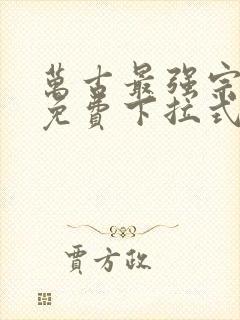 萬古最强宗
免費下拉式
賈方政